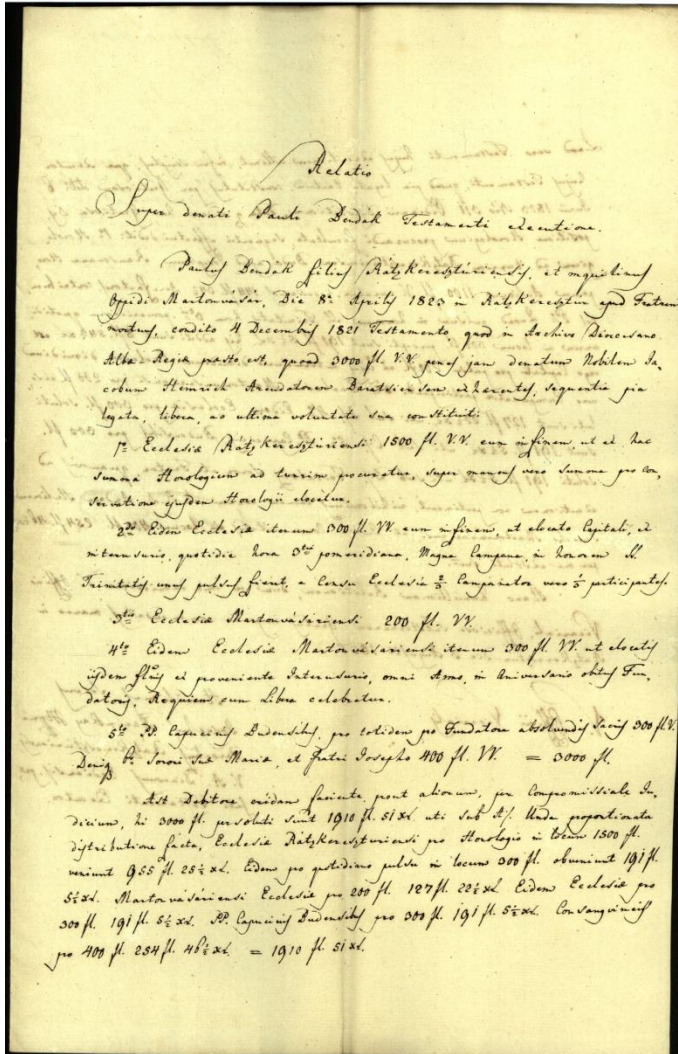 Relatio
Super denati Pauli Bendák Testamenti executione.
Paulus Bendák filius Rátzkeresztúriensis, et inquilinus
Oppidi Martonvásár, Die 8a Aprilis 1823 in Rátzkeresztur apud Fratrem
mortuus, condito 4 Decembris 1821 Testamento, quod in Archivo Dioecesano
Alba Regiæ præsto est, quoad 3000 fl. V.V. penes jam denatum Nobilem Ja„
cobum Heinrich Arendatorem Baratsiensem exhærentes, sequentia pia
legata, libera, ac ultima voluntate sua constituit:
1o Ecclesiæ Rátzkeresztúriensi 1500 fl. V.V. eum in finem, ut ex hac
summa Horologium ad turrim procuretur, super manens vero summa pro con„
servatione ejusdem Horologii elocetur.
2do Eidem Ecclesiæ iterum 300 fl. VV. eum in finem, ut elocato Capitali, ex
interusurio, quotidie hora 3tia pomeridiana, Magna Campana, in honorem SS.
Trinitatis unus pulsus fieret, e Censu Ecclesia 2/3 Campanator vero 1/3 participantes.
3tio Ecclesiæ Martonvásáriensi 200 fl. VV.
4to Eidem Ecclesiæ Martonvásáriensi iterum 300 fl. VV. ut elocatis
iisdem flnis ex proveniente Interusurio, omni Anno, in Aniversario obitus Fun„
datoris, Requiem cum Libera celebretur.
5to PP. Capucinis Budensibus, pro totidem pro Fundatore absolvendis Sacris 300 fl. V.
Deniq 6o Sorori suæ Mariæ, et Fratri Josepho 400 fl. VV. = 3000 fl.
Ast Debitore cridam faciente, pront aliorum, per Compromissiale Ju„
dicium, hi 3000 fl. persoluti sunt 1910 fl. 51 xr. uti sub A/. Unde proportionata
distributione facta, Ecclesiæ Rátzkeresztúriensi pro Horologio in locum 1500 fl.
veniunt 955 fl. 25½ xr. Eidem pro quotidiano pulsu in locum 300 fl. obveniunt 191 fl.
5½ xr. Martonvásáriensi Ecclesiæ pro 200 fl. 127 fl. 22½ xr. Eidem Ecclesiæ pro
300 fl. 191 fl. 5½ xr. PP. Capucinis Budensibus pro 300 fl. 191 fl. 5½ xr. Consangvineis
pro 400 fl. 254 fl. 46½ xr. = 1910 fl. 51 xr.